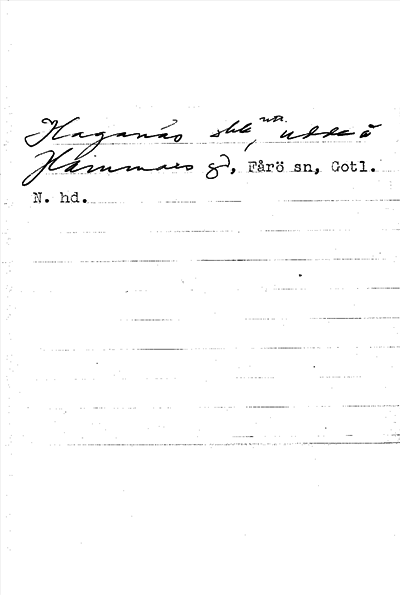 Haganäs skk, udde å
Hammars gd, Fårö sn, Gotl.
N. hd.